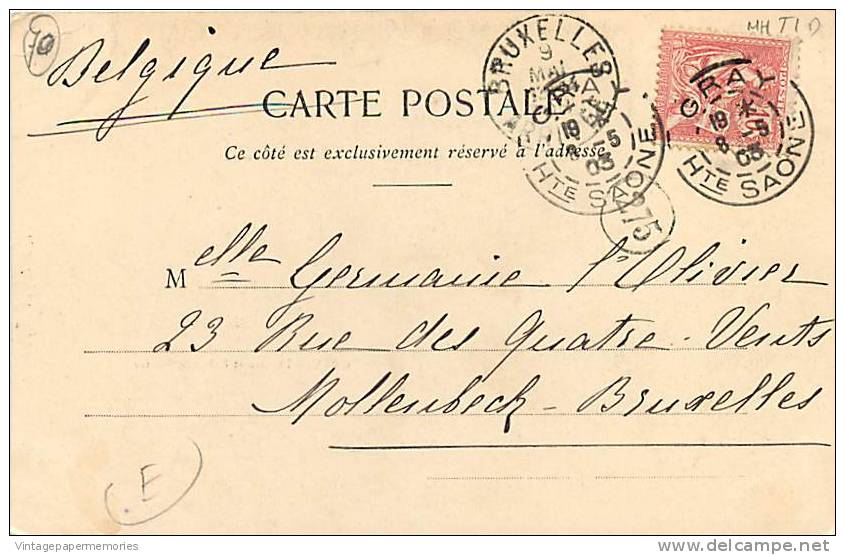 70
MH TI D
Belgique
BRUXELLES
9
MAI
CARTE POSTALE
GRAY
18
8 5
03
HTE SAONE
GRAY
18
8 5
03
HTE SAONE
Ce côté est exclusivement réservé à l'adresse
275
Melle Germaine l'Olivier
23 Rue des Quatre-Vents
Mollenbeck-Bruxelles
E
Vintagepapermemories
delcampe.net